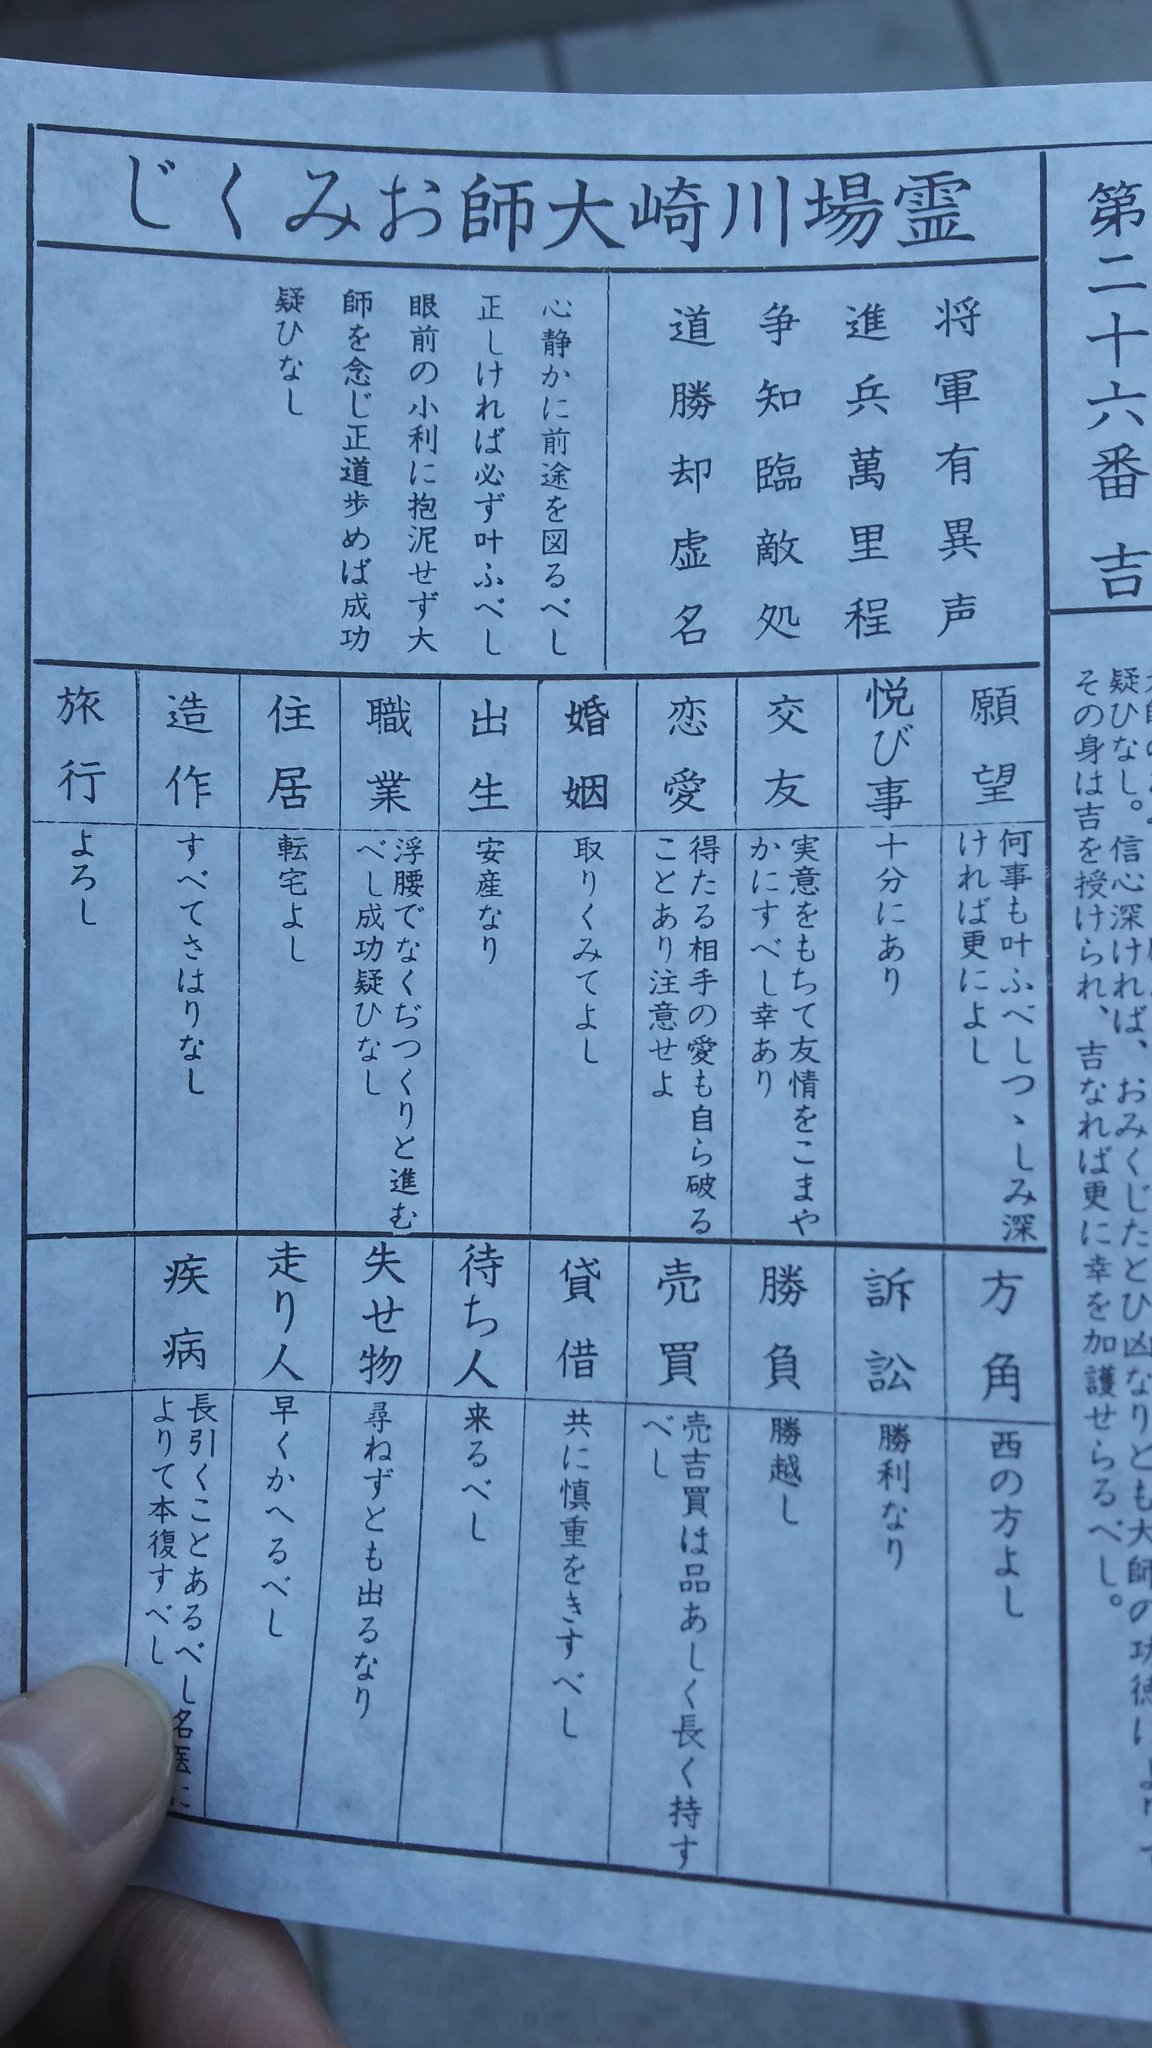 第二十六番 吉
疑ひなし。信心深ければ、おみくじたとひ凶なりとも大師の功徳によりて
その身は吉を授けられ、吉なれば更に幸を加護せらるべし。
霊場川崎大師おみくじ
将軍有異声
進兵萬里程
争知臨敵処
道勝却虚名
心静かに前途を図るべし
正しければ必ず叶ふべし
眼前の小利に抱泥せず大
師を念じ正道歩めば成功
疑ひなし
願望
何事も叶ふべしつゝしみ深
ければ更によし
悦び事
十分にあり
交友
実意をもちて友情をこまや
かにすべし幸あり
恋愛
得たる相手の愛も自ら破る
ことあり注意せよ
婚姻
取りくみてよし
出生
安産なり
職業
浮腰でなくぢつくりと進む
べし成功疑ひなし
住居
転宅よし
造作
すべてさはりなし
旅行
よろし
方角
西の方よし
訴訟
勝利なり
勝負
勝越し
売買
売吉買は品あしく長く持す
べし
貸借
共に慎重をきすべし
待ち人
来るべし
失せ物
尋ねずとも出るなり
走り人
早くかへるべし
疾病
長引くことあるべし名医に
よりて本復すべし